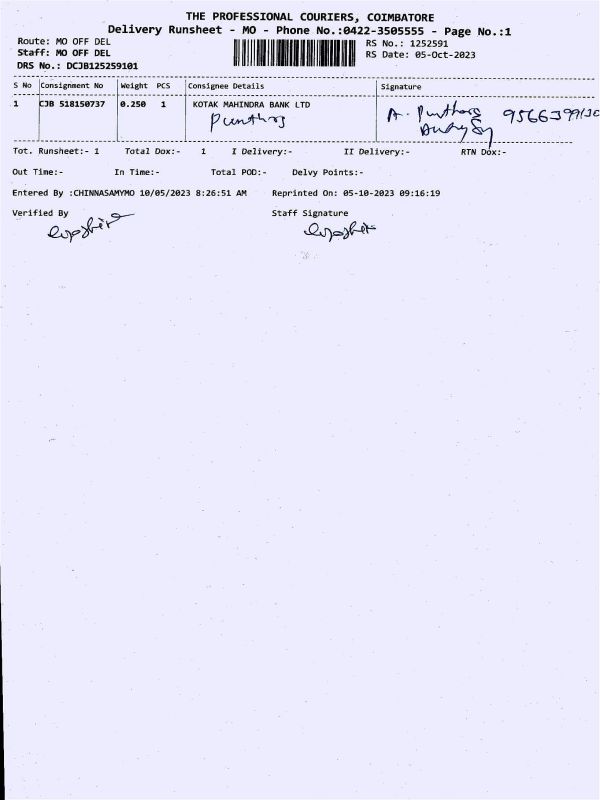 THE PROFESSIONAL COURIERS, COIMBATORE
Delivery Runsheet - MO - Phone No.:0422-3505555 - Page No.:1
Route: MO OFF DEL
Staff: MO OFF DEL
DRS No.: DCJB125259101
RS No.: 1252591
RS Date: 05-Oct-2023
S No Consignment No Weight PCS Consignee Details Signature
1 CJB 518150737 0.250 1 KOTAK MAHINDRA BANK LTD
Tot. Runsheet:- 1 Total Dox:- 1 I Delivery:- II Delivery:- RTN Dox:-
Out Time:- In Time:- Total POD:- Delvy Points:-
Entered By :CHINNASAMYMO 10/05/2023 8:26:51 AM Reprinted On: 05-10-2023 09:16:19
Verified By Staff Signature